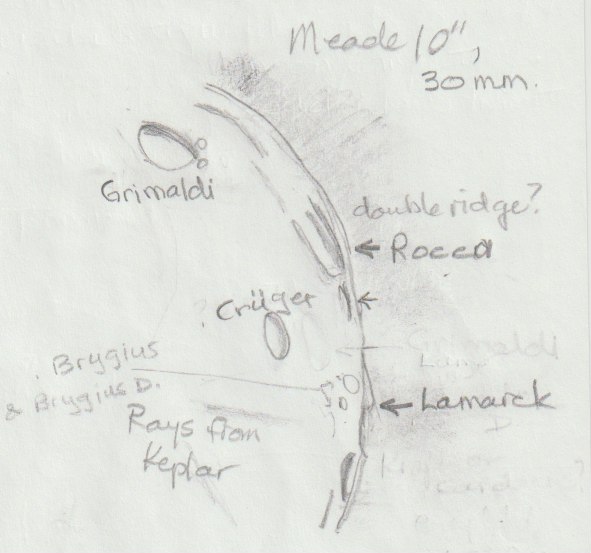 Meade 10",
30mm.
Grimaldi
double ridge?
← Rocca
? Crüger
←
Grimaldi
. Brygius
& Brygius D.
← Lamarck
Rays from
Keplar